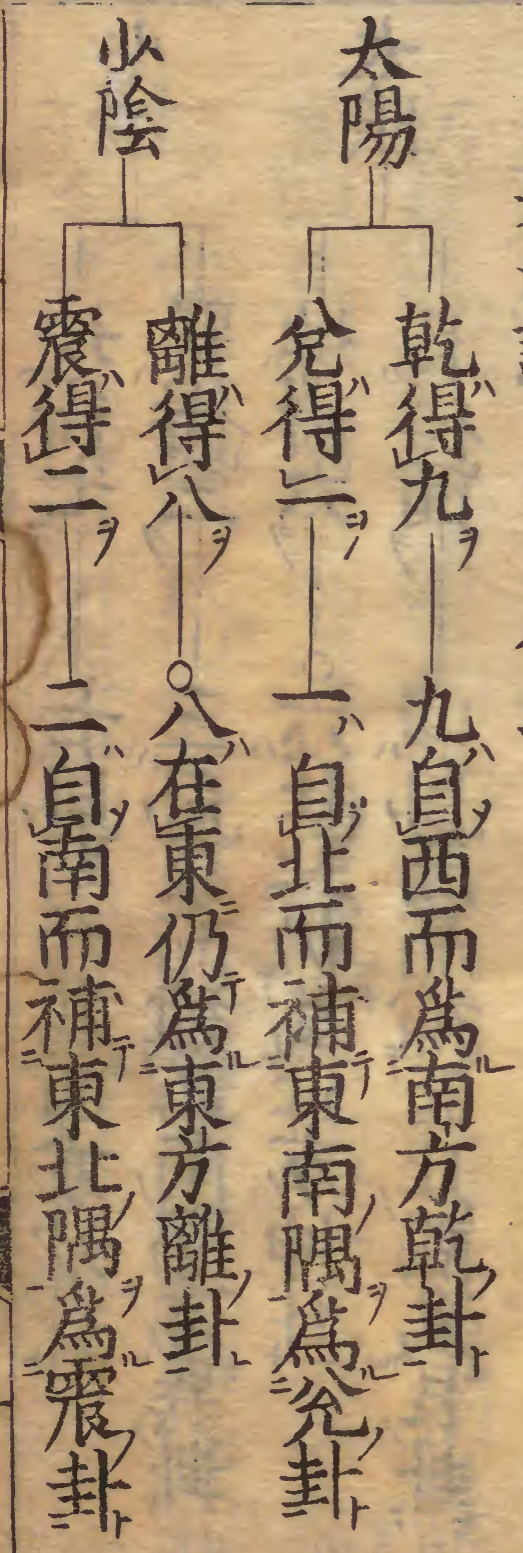 太陽
乾得九
九自西而為南方乾卦
兌得一
一自北而補東南隅為兌卦
少陰
離得八
○八在東仍為東方離卦
震得二
二自南而補東北隅為震卦